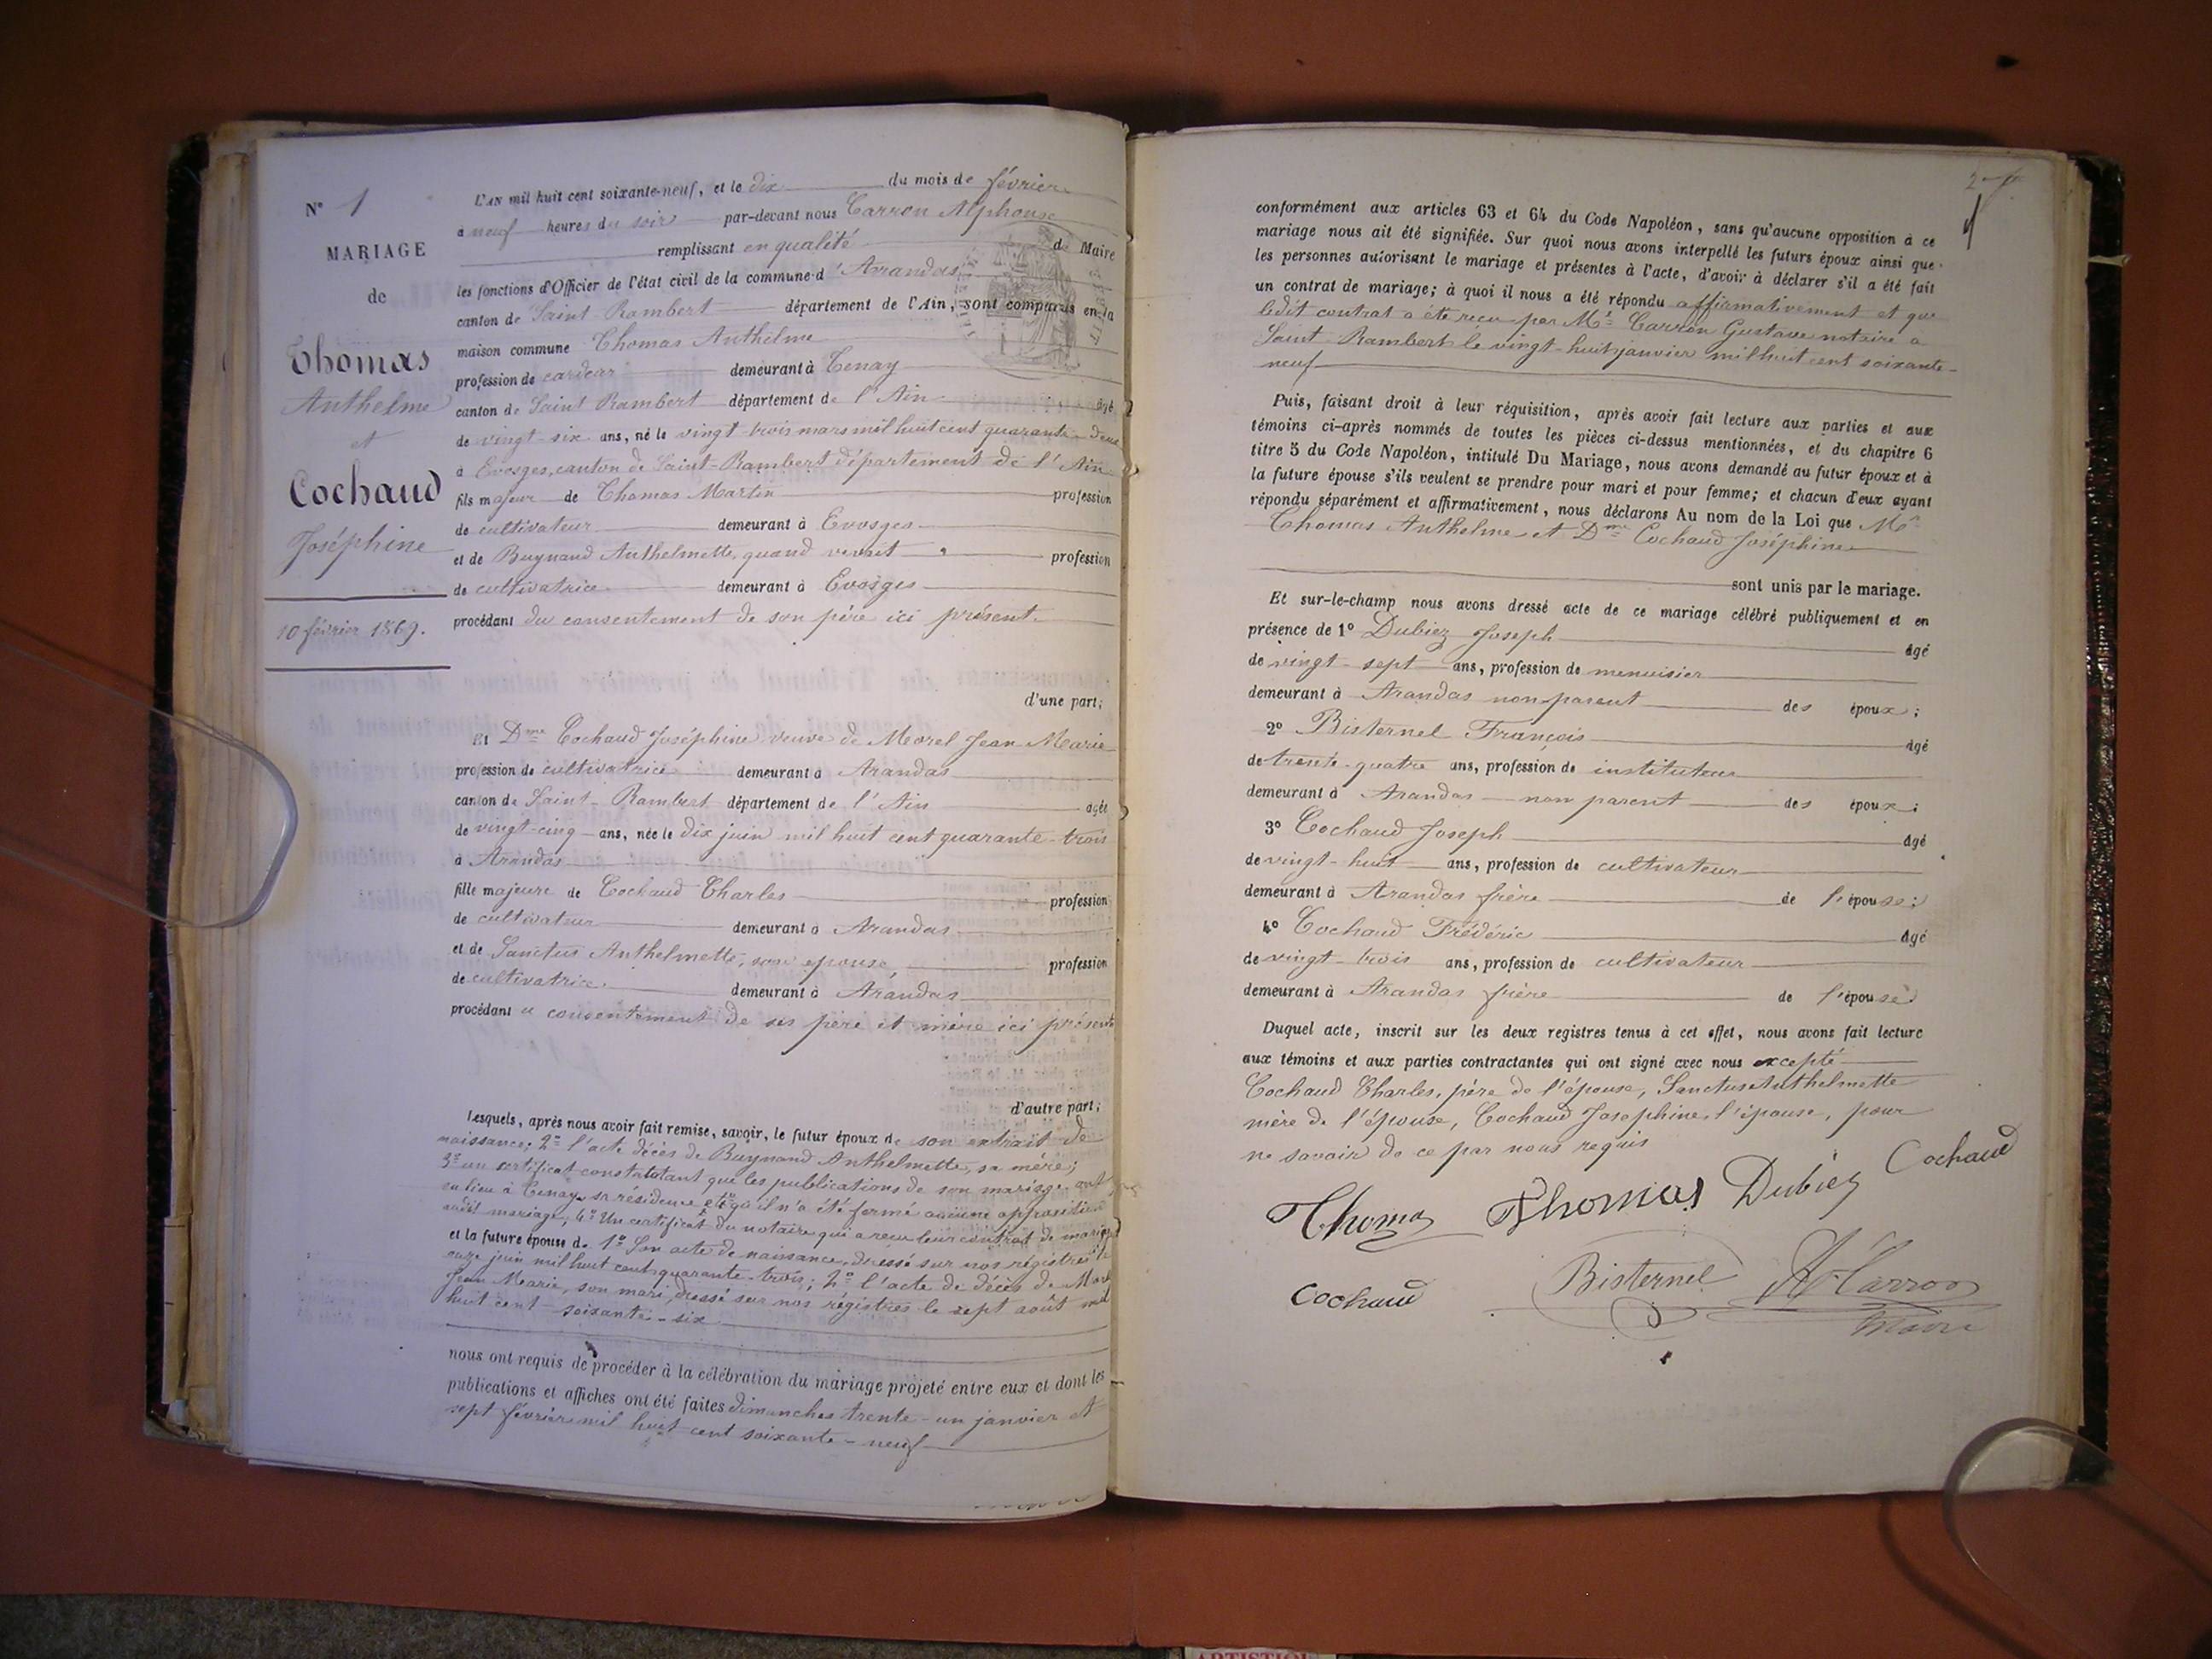 N° 1
MARIAGE
de
Thomas
Anthelme
et
Cochaud
Joséphine
10 février 1869.
L'AN mil huit cent soixante-neuf, et le dix du mois de février
à neuf heures du soir par-devant nous Carron Alphonse
remplissant en qualité de Maire
les fonctions d'Officier de l'état civil de la commune d'Arandas
canton de Saint-Rambert département de l'Ain, sont comparus en la
maison commune Thomas Anthelme
profession de cardeur demeurant à Tenay
canton de Saint Rambert département de l'Ain âgé
de vingt-six ans, né le vingt-trois mars mil huit cent quarante-deux
à Evosges, canton de Saint-Rambert département de l'Ain
fils majeur de Thomas Martin profession
de cultivateur demeurant à Evosges
et de Buynand Anthelmette, quand vivait profession
de cultivatrice demeurant à Evosges
procédant du consentement de son père ici présent.
d'une part;
Et Dme Cochaud Joséphine veuve de Morel Jean Marie
profession de cultivatrice demeurant à Arandas
canton de Saint-Rambert département de l'Ain agée
de vingt-cinq ans, née le dix juin mil huit cent quarante-trois
à Arandas
fille majeure de Cochaud Charles profession
de cultivateur demeurant à Arandas
et de Sanctus Anthelmette, son épouse, profession
de cultivatrice demeurant à Arandas
procédant u consentement de ses père et mère ici présents
d'autre part;
Lesquels, après nous avoir fait remise, savoir, le futur époux de son extrait de
naissance; 2° l'acte décès de Buynand Anthelmette, sa mère;
3° un certificat constatant que les publications de son mariage ont
eu lieu à Tenay sa résidence et qu'il n'a été formé aucune opposition
audit mariage; 4° Un certificat du notaire qui a reçu leur contrat de mariage
et la future épouse de 1° Son acte de naissance, dressé sur nos régistres le
onze juin mil huit cent quarante-trois; 2° l'acte de décès de Morel
Jean Marie, son mari, dressé sur nos régistres le sept août mil
huit cent soixante-six
nous ont requis de procéder à la célébration du mariage projeté entre eux et dont les
publications et affiches ont été faites dimanches trente-un janvier et
sept février mil huit cent soixante-neuf
2
conformément aux articles 63 et 64 du Code Napoléon, sans qu'aucune opposition à ce
mariage nous ait été signifiée. Sur quoi nous avons interpellé les futurs époux ainsi que
les personnes autorisant le mariage et présentes à l'acte, d'avoir à déclarer s'il a été fait
un contrat de mariage; à quoi il nous a été répondu affirmativement et que
ledit contrat a été reçu par Me Carron Gustave notaire a
Saint-Rambert le vingt-huit janvier mil huit cent soixante-
neuf
Puis, faisant droit à leur réquisition, après avoir fait lecture aux parties et aux
témoins ci-après nommés de toutes les pièces ci-dessus mentionnées, et du chapitre 6
titre 5 du Code Napoléon, intitulé Du Mariage, nous avons demandé au futur époux et à
la future épouse s'ils veulent se prendre pour mari et pour femme; et chacun d'eux ayant
répondu séparément et affirmativement, nous déclarons Au nom de la Loi que Mr
Thomas Anthelme et Dme Cochaud Joséphine
sont unis par le mariage.
Et sur-le-champ nous avons dressé acte de ce mariage célébré publiquement et en
présence de 1° Dubiez Joseph âgé
de vingt-sept ans, profession de menuisier
demeurant à Arandas non parent des époux;
2° Bisternel François âgé
de trente-quatre ans, profession de instituteur
demeurant à Arandas non parent des époux;
3° Cochaud Joseph âgé
de vingt-huit ans, profession de cultivateur
demeurant à Arandas frère de l'épouse;
4° Cochaud Frédéric âgé
de vingt-trois ans, profession de cultivateur
demeurant à Arandas frère de l'épouse
Duquel acte, inscrit sur les deux registres tenus à cet effet, nous avons fait lecture
aux témoins et aux parties contractantes qui ont signé avec nous excepté
Cochaud Charles, père de l'épouse, Sanctus Anthelmette
mère de l'épouse, Cochaud Joséphine, l'épouse, pour
ne savoir de ce par nous requis
Cochaud
Thomas Thomas Dubiez
Cochaud Bisternel A Carron
Maire